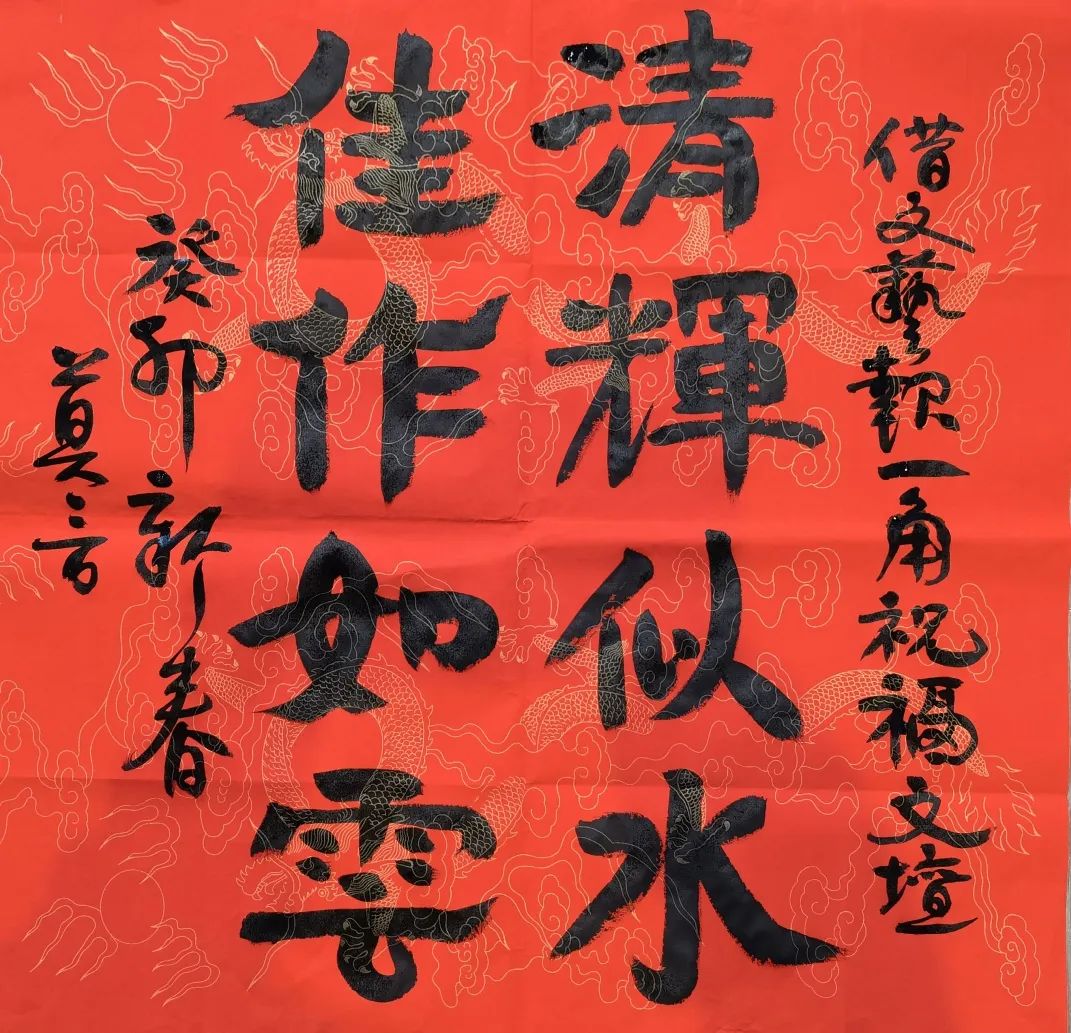 借文藝報一角祝福文壇
清輝似水
佳作如雲
癸卯新春
莫言